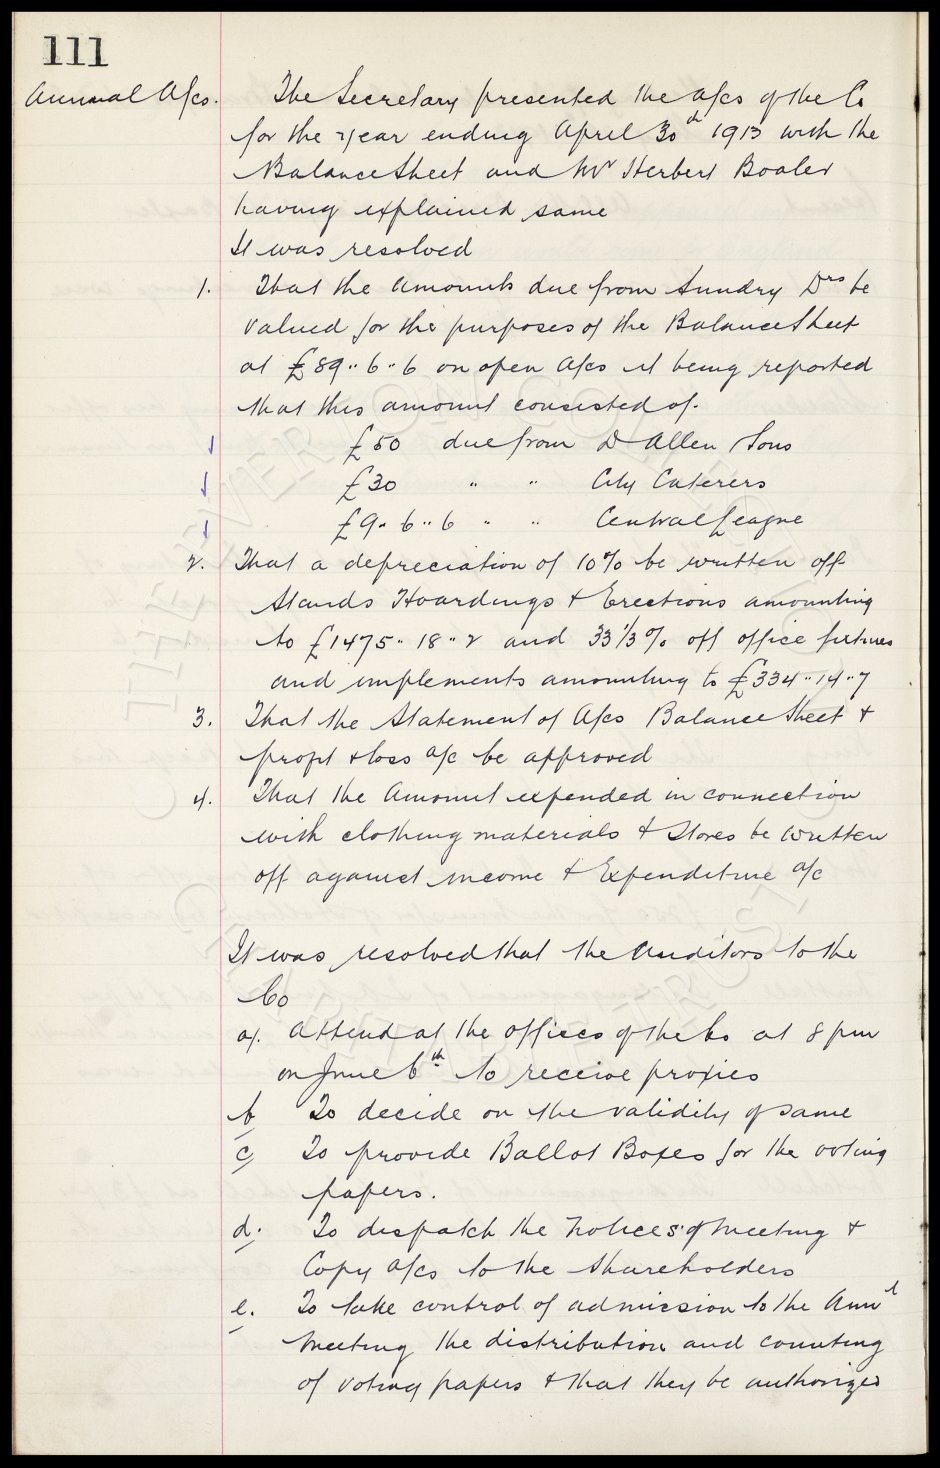 111
Annual A/cs.
The Secretary presented the A/cs of the Co
for the year ending April 30th 1913 with the
Balance Sheet and Mr Herbert Boaler
having explained same
It was resolved
1. That the Amounts due from Sundry Drs be
valued for the purposes of the Balance Sheet
at £89 " 6 " 6 on open A/cs it being reported
that this amount consisted of.
£50 due from D Allen Sons
£30 " " City Caterers
£9 " 6 " 6 " " Central League
2. That a depreciation of 10% be written off
Stands Hoardings & Erections amounting
to £1475 " 18 " 2 and 33 1/3 % off office fixtures
and implements amounting to £334 " 14 " 7
3. That the Statement of A/cs Balance Sheet &
profit & loss a/c be approved
4. That the Amount expended in connection
with clothing materials & Stores be written
off against income & Expenditure a/c
It was resolved that the Auditors to the
Co
a/. Attend at the offices of the Co at 8 pm
on June 6th to receive proxies
b To decide on the validity of same
c To provide Ballot Boxes for the voting
papers.
d. To dispatch the Notices of Meeting &
Copy A/cs to the Shareholders
e. To take control of admission to the Annl
Meeting the distribution and counting
of voting papers & that they be authorized